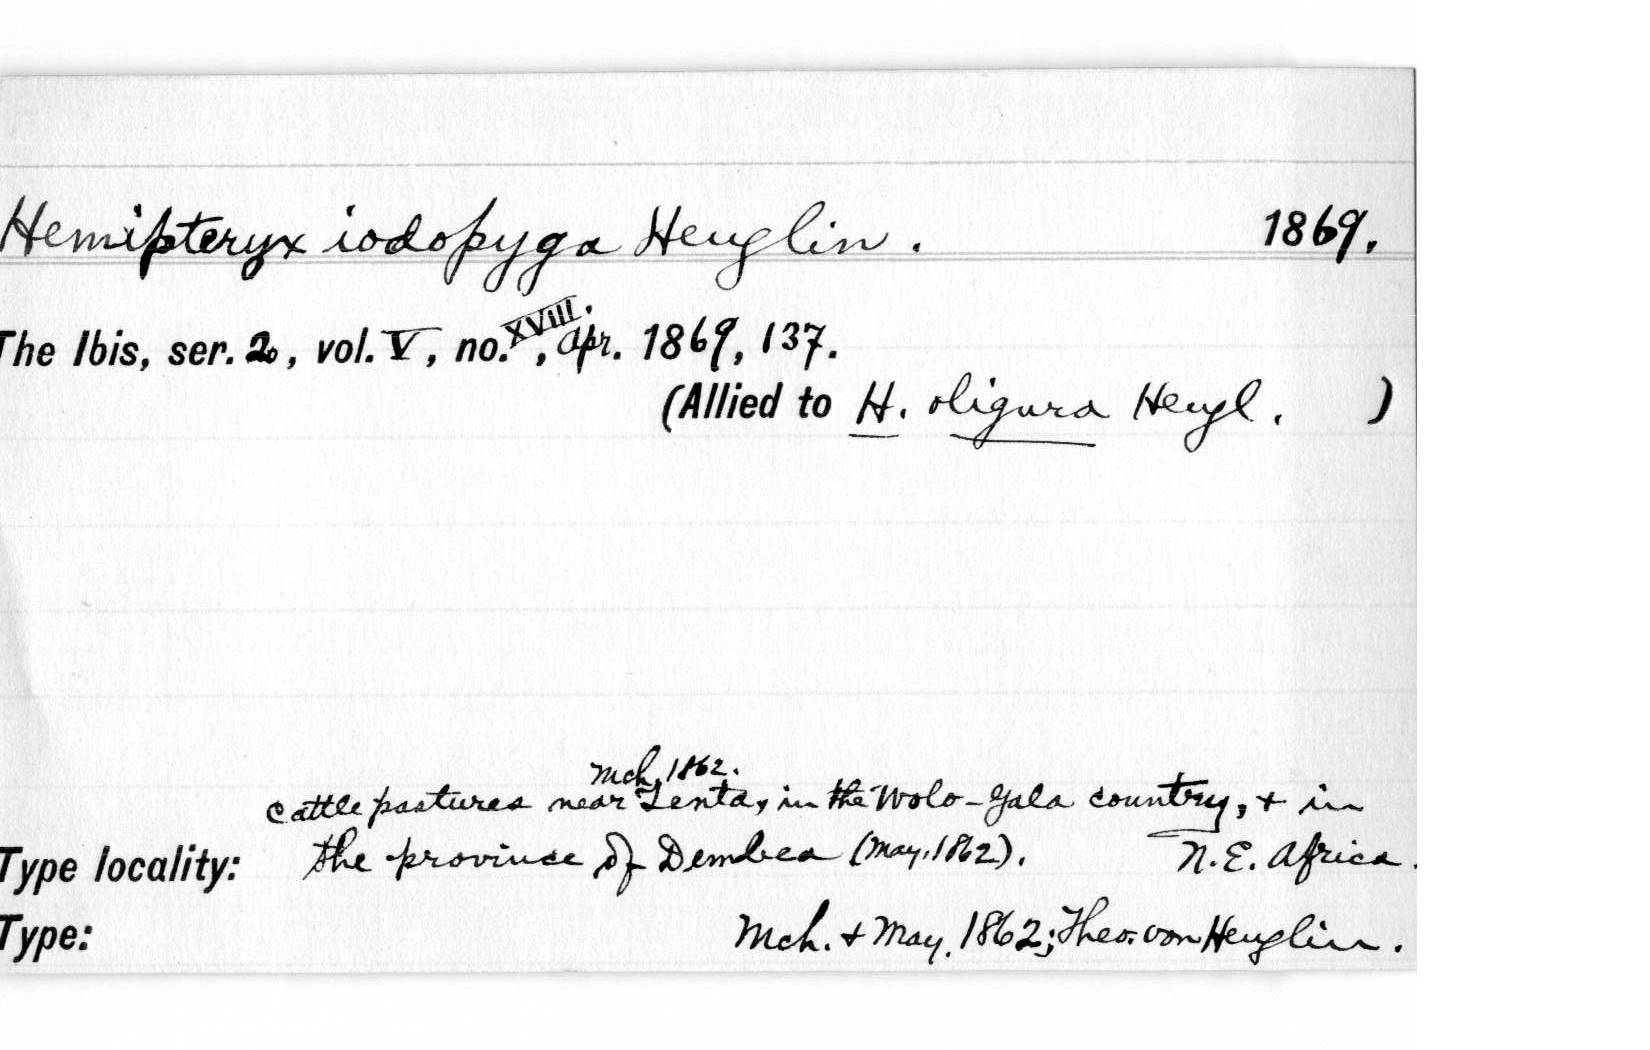 Hemipteryx iodopyga Heuglin. 1869.
The Ibis, ser. 2, vol. V, no. XVIII., Apr. 1869, 137.
(Allied to H. oligura Heugl. )
Mch, 1862.
cattle pastures near Tenta, in the Wolo-Gala country, + in
Type locality: the province of Dembea (May, 1862). N.E. Africa.
Type: Mch. + May, 1862; Theo. von Heuglin.